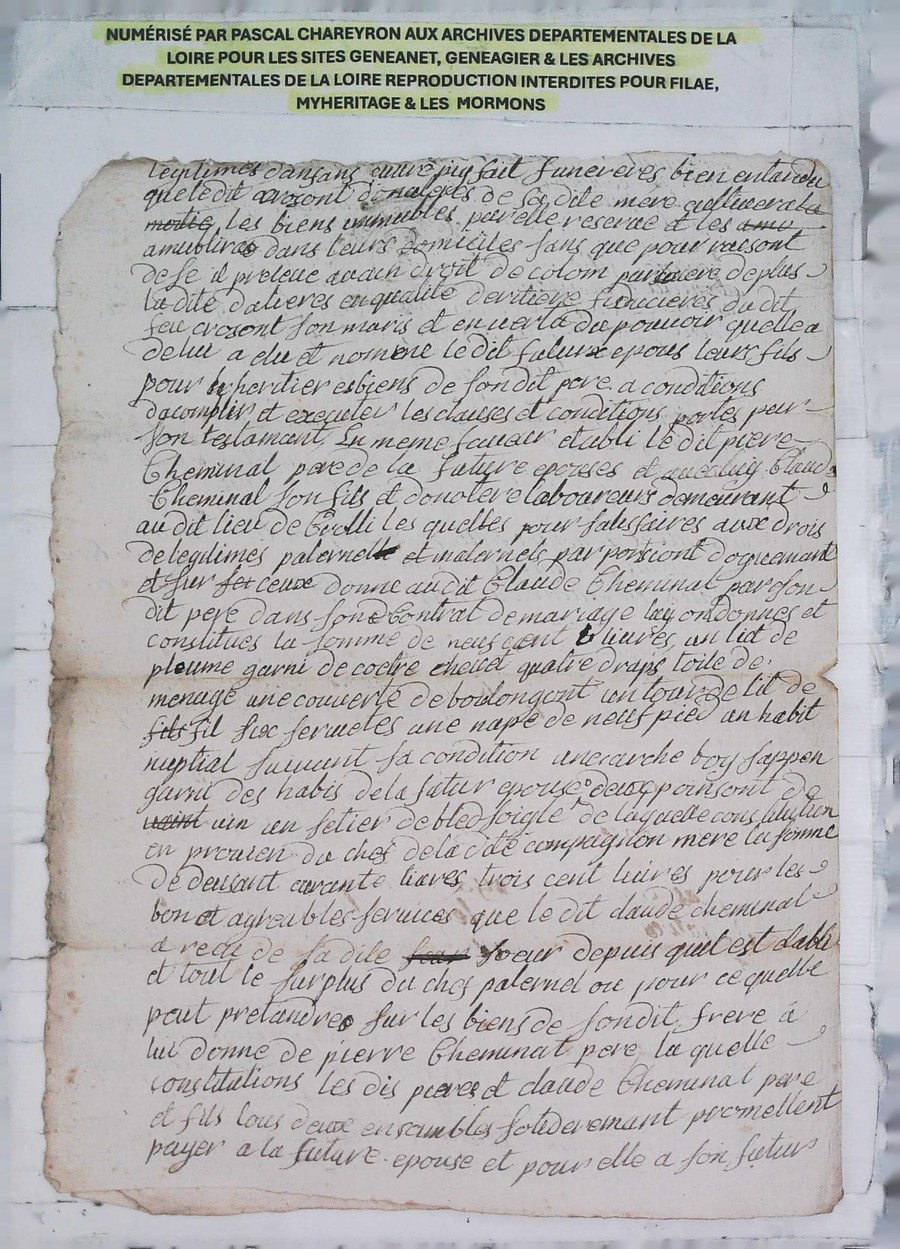 NUMÉRISÉ PAR PASCAL CHAREYRON AUX ARCHIVES DEPARTEMENTALES DE LA
LOIRE POUR LES SITES GENEANET, GENEAGIER & LES ARCHIVES
DEPARTEMENTALES DE LA LOIRE REPRODUCTION INTERDITES POUR FILAE,
MYHERITAGE & LES MORMONS
legitimes funereres bien entandu
que ledit crosont de sa dite mere cultivera la
moitie les biens immubles par elle reserve et les amu
amublires dans leurs domiciles sans que pour raisont
de se il preteue aucun droit de colom partiaire de plus
la dite dalieres en qualité deritiere fiducieres du dit
feu crosont son maris et en vertu du pouvoir quelle a
de lui a elu et nomene le dit futur epous leurs fils
pour heritier es biens de son dit pere a conditions
dacomplir et executer les clauses et conditions portes par
son testamant En meme etabli le dit pierre
Cheminal pere de la future epouses et Claude
Cheminal son fils et donatere laboureurs demeurant
au dit lieu de les quelles pour satisfaires aux drois
de legitimes paternelle et maternels par portsiont dogremant
et sur ceux donne au dit Claude Cheminal par son
dit pere dans son Contrat de mariage luy ont donnes et
constitues la somme de neuf cent livres, un lit de
pleume garni de coetre chevet quatre draps toile de
menage une couverte de boulongont un tour de lit de
fil six serviettes une nape de neuf pied un habit
nuptial suivant sa condition une arche boy sappen
garni des habis de la futur epouse deux poinsont de
vin un setier de bled soigle de laquelle constitution
en provien du chef de la dite compagnon mere la somme
de deusant carante livres trois cent livres pour les
bon et agreables services que le dit claude cheminal
a recu de sa dite soeur depuis quil est etabli
et tout le surplus du chef paternel ou pour ce quelle
peut pretandre sur les biens de son dit frere á
lui donne de pierre Cheminal pere la quelle
constitutions les dis pieres et claude Cheminal pere
et fils tous deux ensambles soliderement promettent
payer a la future epouse et pour elle a son futur